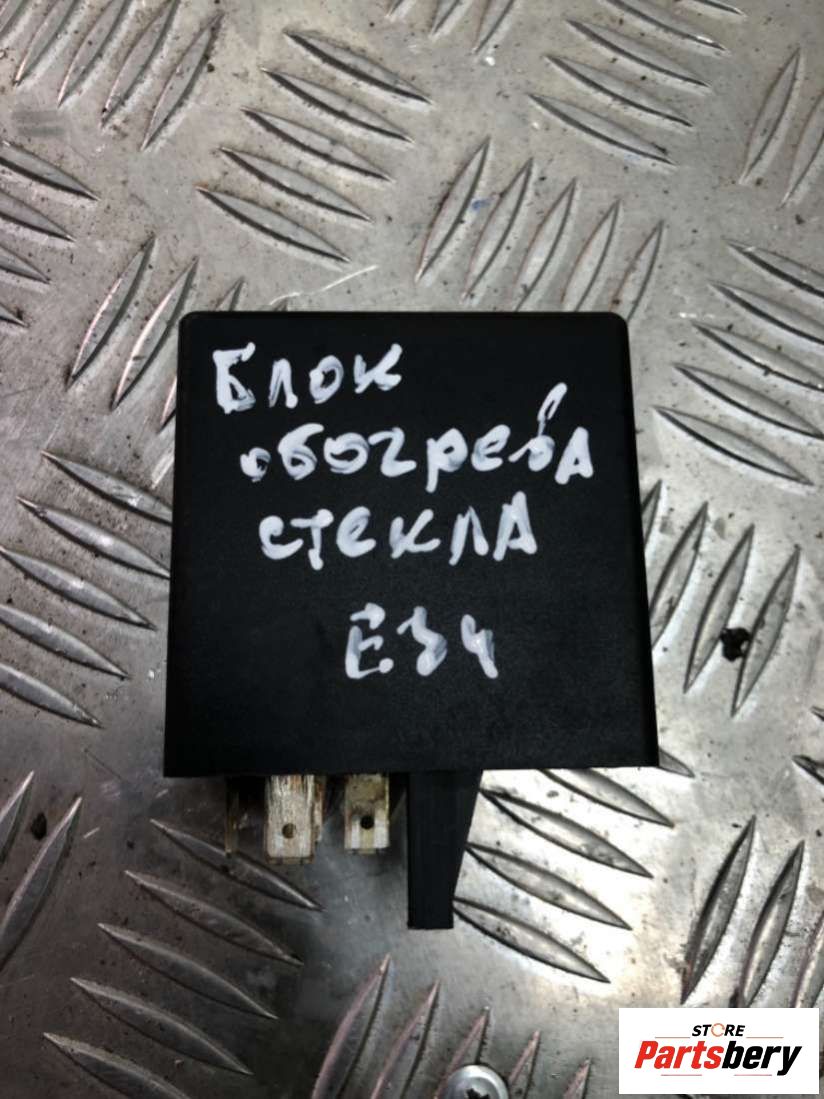 Блок
обогрева
стекла
E34
STORE
Partsbery